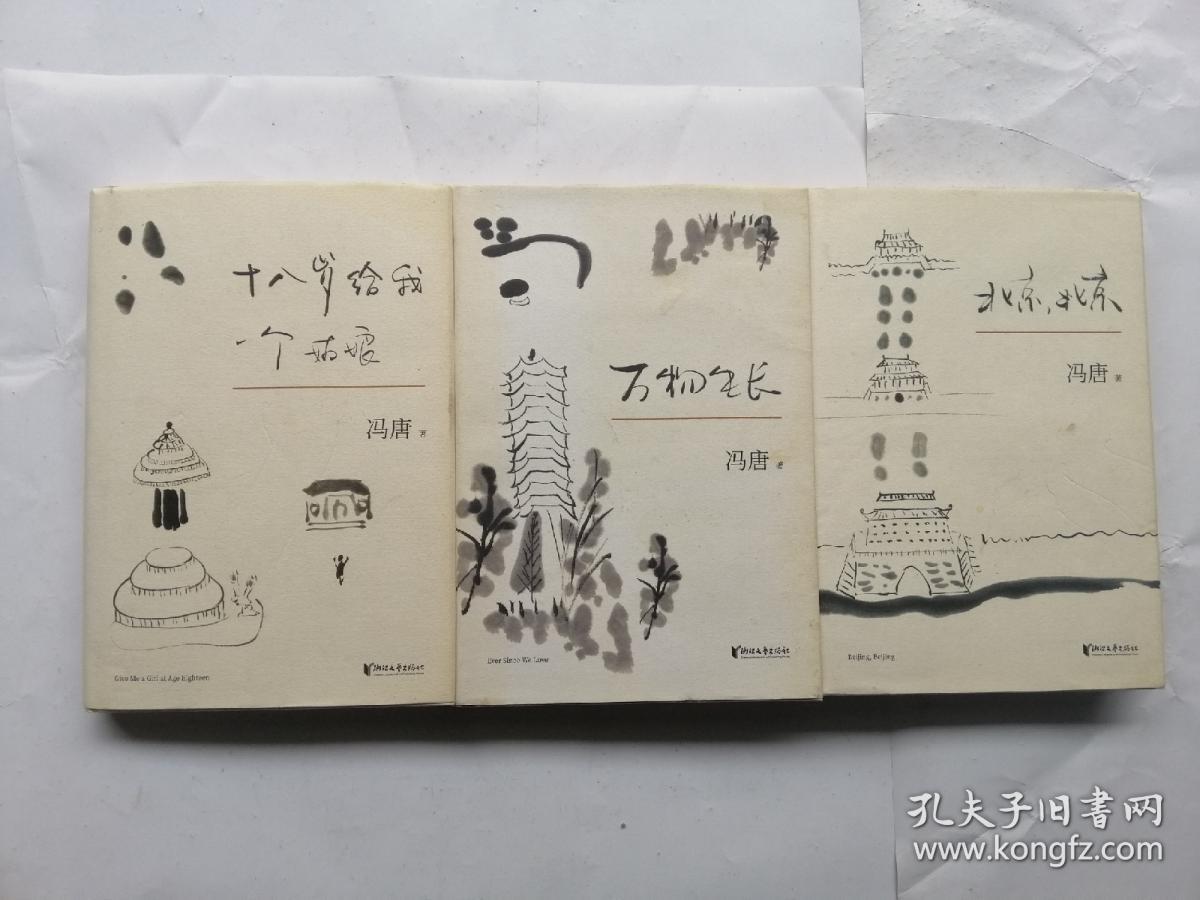 十八岁给我
一个姑娘
冯唐 著
Give Me a Girl at Age Eighteen
浙江文艺出版社
万物生长
冯唐 著
Ever Since We Love
浙江文艺出版社
北京，北京
冯唐 著
Beijing, Beijing
浙江文艺出版社
孔夫子旧书网
www.kongfz.com